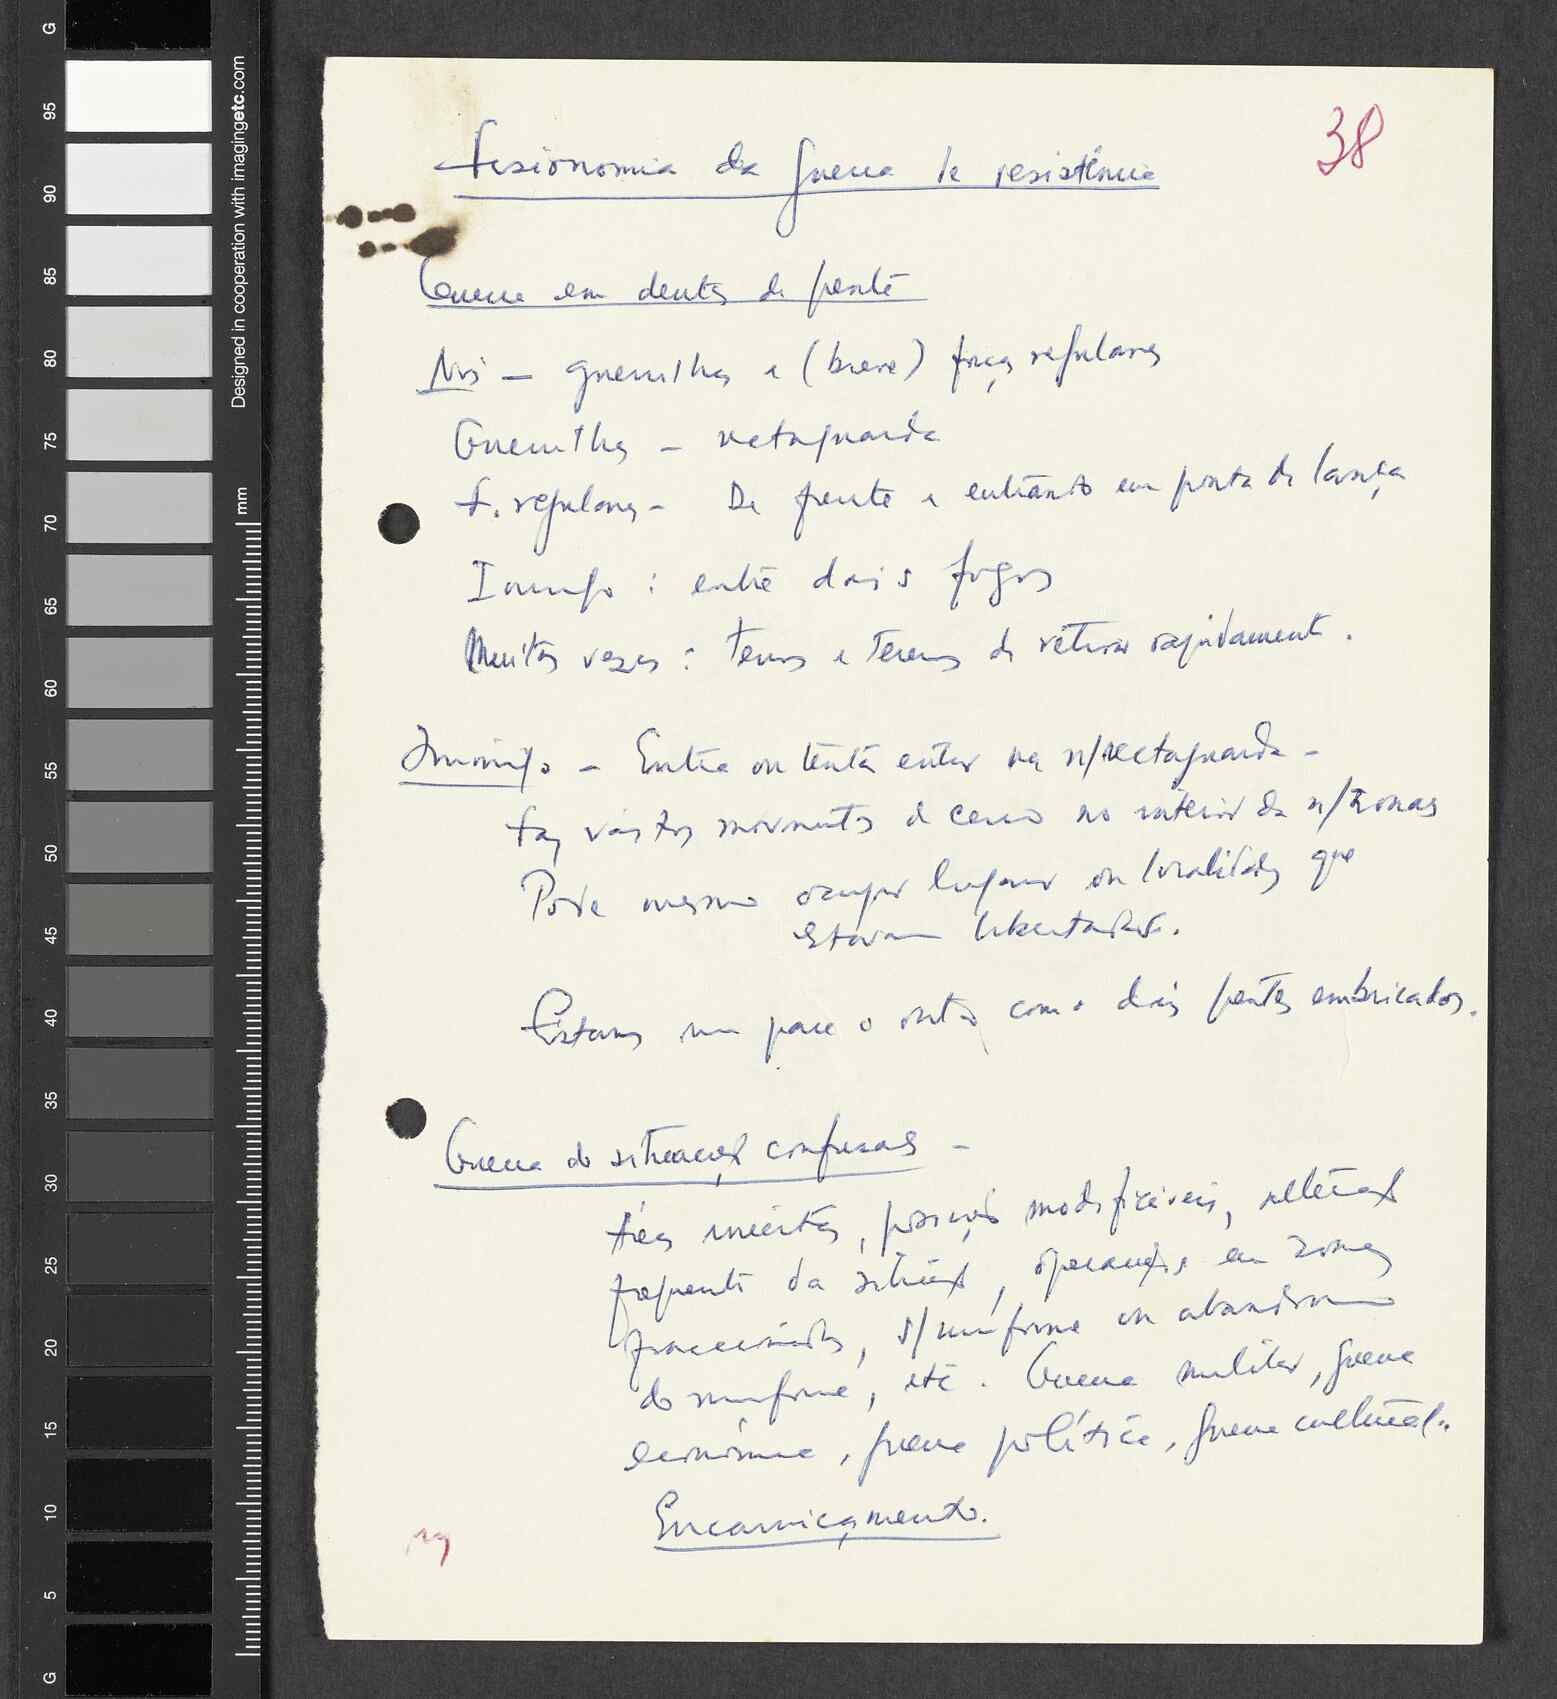 38
Fisionomia da guerra de resistência
Guerra em dentes de pente
Nós — guerrilhas e (breve) forças regulares
Guerrilhas — rectaguarda
F. regulares — De frente e entrando em ponta de lança
Inimigo : entre dois fogos
Muitas vezes : temos e teremos de retirar rapidamente.
Inimigo — Entra ou tenta entrar na n/rectaguarda —
Faz vastos movimentos de cerco no interior da n/ zonas
Pode mesmo ocupar lugares ou localidades que
estavam libertadas.
Estamos um para o outro como dois pentes embricados.
Guerra de situações confusas —
incertas, posições modificáveis,
frequente da situação, operações em zonas
s/ uniforme ou abandono
do uniforme, etc. Guerra militar, guerra
económica, guerra política, guerra cultural.
Encarniçamento.
G
95
90
85
80
75
70
65
60
55
50
45
40
35
30
25
20
15
10
5
G
Designed in cooperation with imagingetc.com
mm